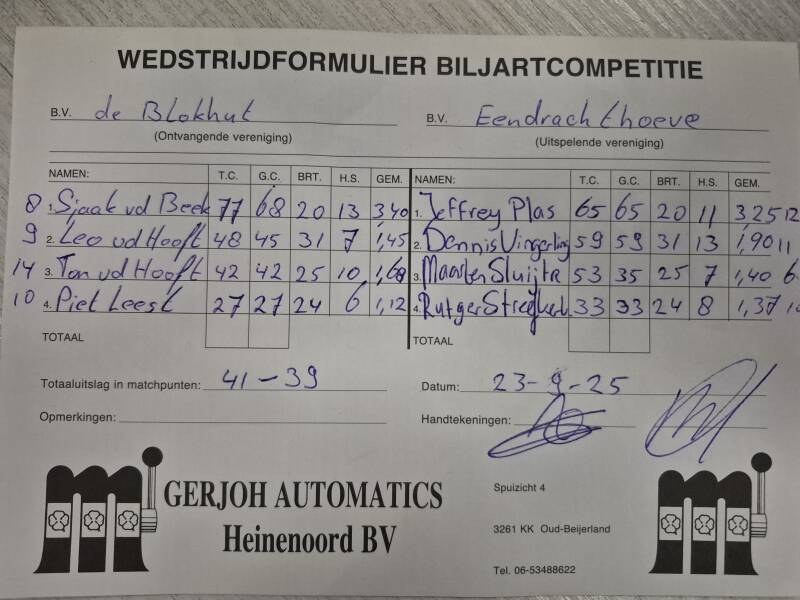 WEDSTRIJDFORMULIER BILJARTCOMPETITIE
B.V. de Blokhut B.V. Eendrachthoeve
(Ontvangende vereniging) (Uitspelende vereniging)
NAMEN: T.C. G.C. BRT. H.S. GEM. NAMEN: T.C. G.C. BRT. H.S. GEM.
8 1. Sjaak vd Beek 77 68 20 13 3,40 1. Jeffrey Plas 65 65 20 11 3,25 12
9 2. Leo vd Hooft 48 45 31 7 1,45 2. Dennis Vingerling 59 59 31 13 1,90 11
14 3. Ton vd Hooft 42 42 25 10 1,68 3. Maarten Sluijts 53 35 25 7 1,40 6
10 4. Piet Leest 27 27 24 6 1,12 4. Rutger 33 33 24 8 1,37 10
TOTAAL TOTAAL
Totaaluitslag in matchpunten: 41-39 Datum: 23-9-25
Opmerkingen: Handtekeningen:
GERJOH AUTOMATICS
Heinenoord BV
Spuizicht 4
3261 KK Oud-Beijerland
Tel. 06-53488622